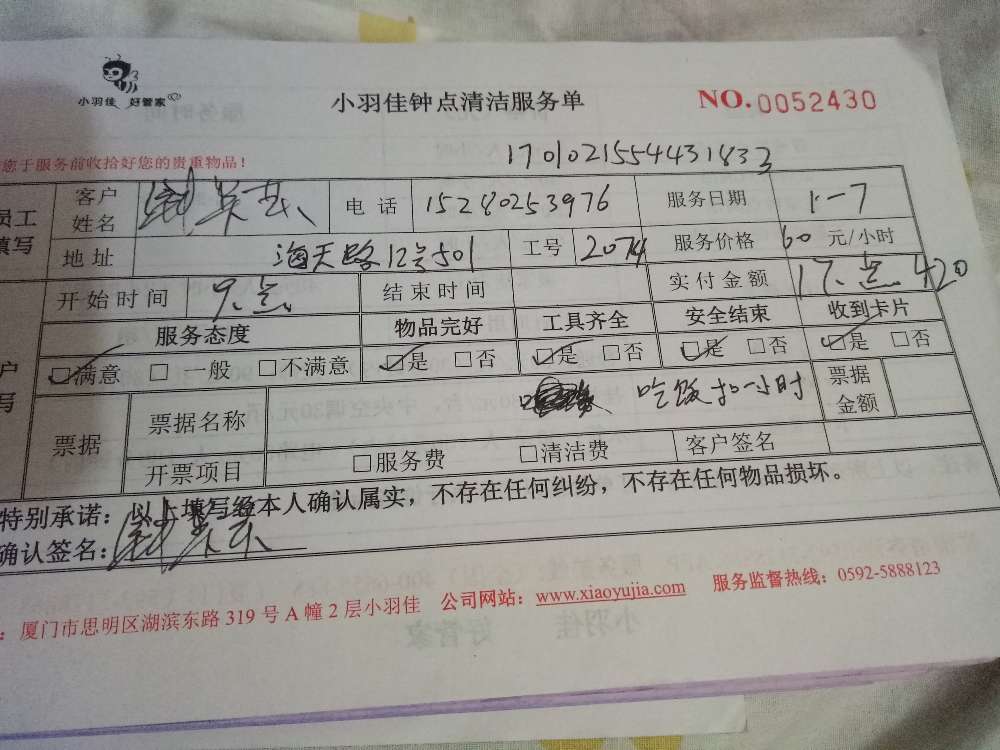 小羽佳 好管家
小羽佳钟点清洁服务单
NO.0052430
您于服务前收拾好您的贵重物品!
1701021554431833
员工填写 客户姓名 电话 15280253976 服务日期 1-7
地址 海天路12号501 工号 2074 服务价格 60 元/小时
开始时间 9点 结束时间 17点 实付金额 420
服务态度 物品完好 工具齐全 安全结束 收到卡片
☑满意 □一般 □不满意 ☑是 □否 ☑是 □否 ☑是 □否 ☑是 □否
户写 票据 票据名称 吃饭扣一小时 票据金额
开票项目 □服务费 □清洁费 客户签名
特别承诺:以上填写经本人确认属实,不存在任何纠纷,不存在任何物品损坏。
确认签名:
:厦门市思明区湖滨东路319号A幢2层小羽佳 公司网站:www.xiaoyujia.com 服务监督热线:0592-5888123